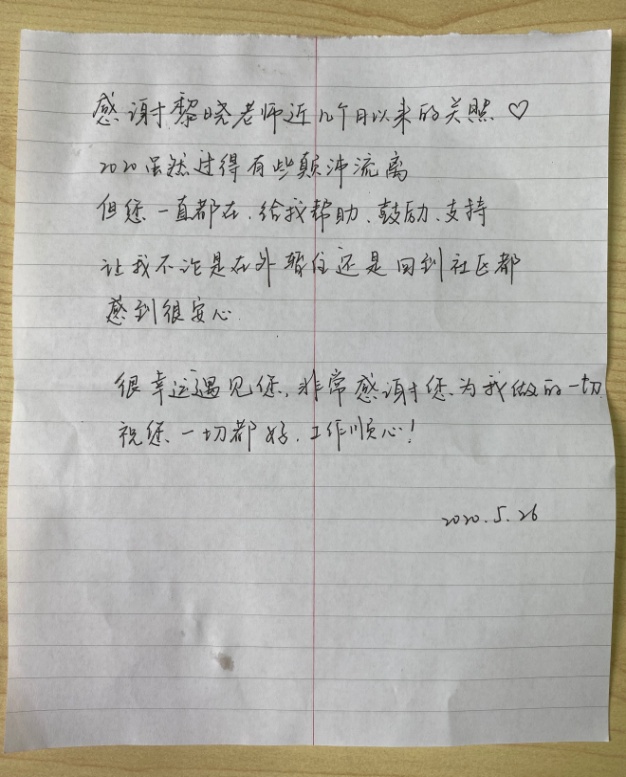 感谢黎晓老师近几个月以来的关照♡
2020虽然过得有些颠沛流离
但您一直都在、给我帮助、鼓励、支持
让我不论是在外暂住还是回到社区都
感到很安心
很幸运遇见您,非常感谢您为我做的一切
祝您一切都好、工作顺心!
2020.5.26